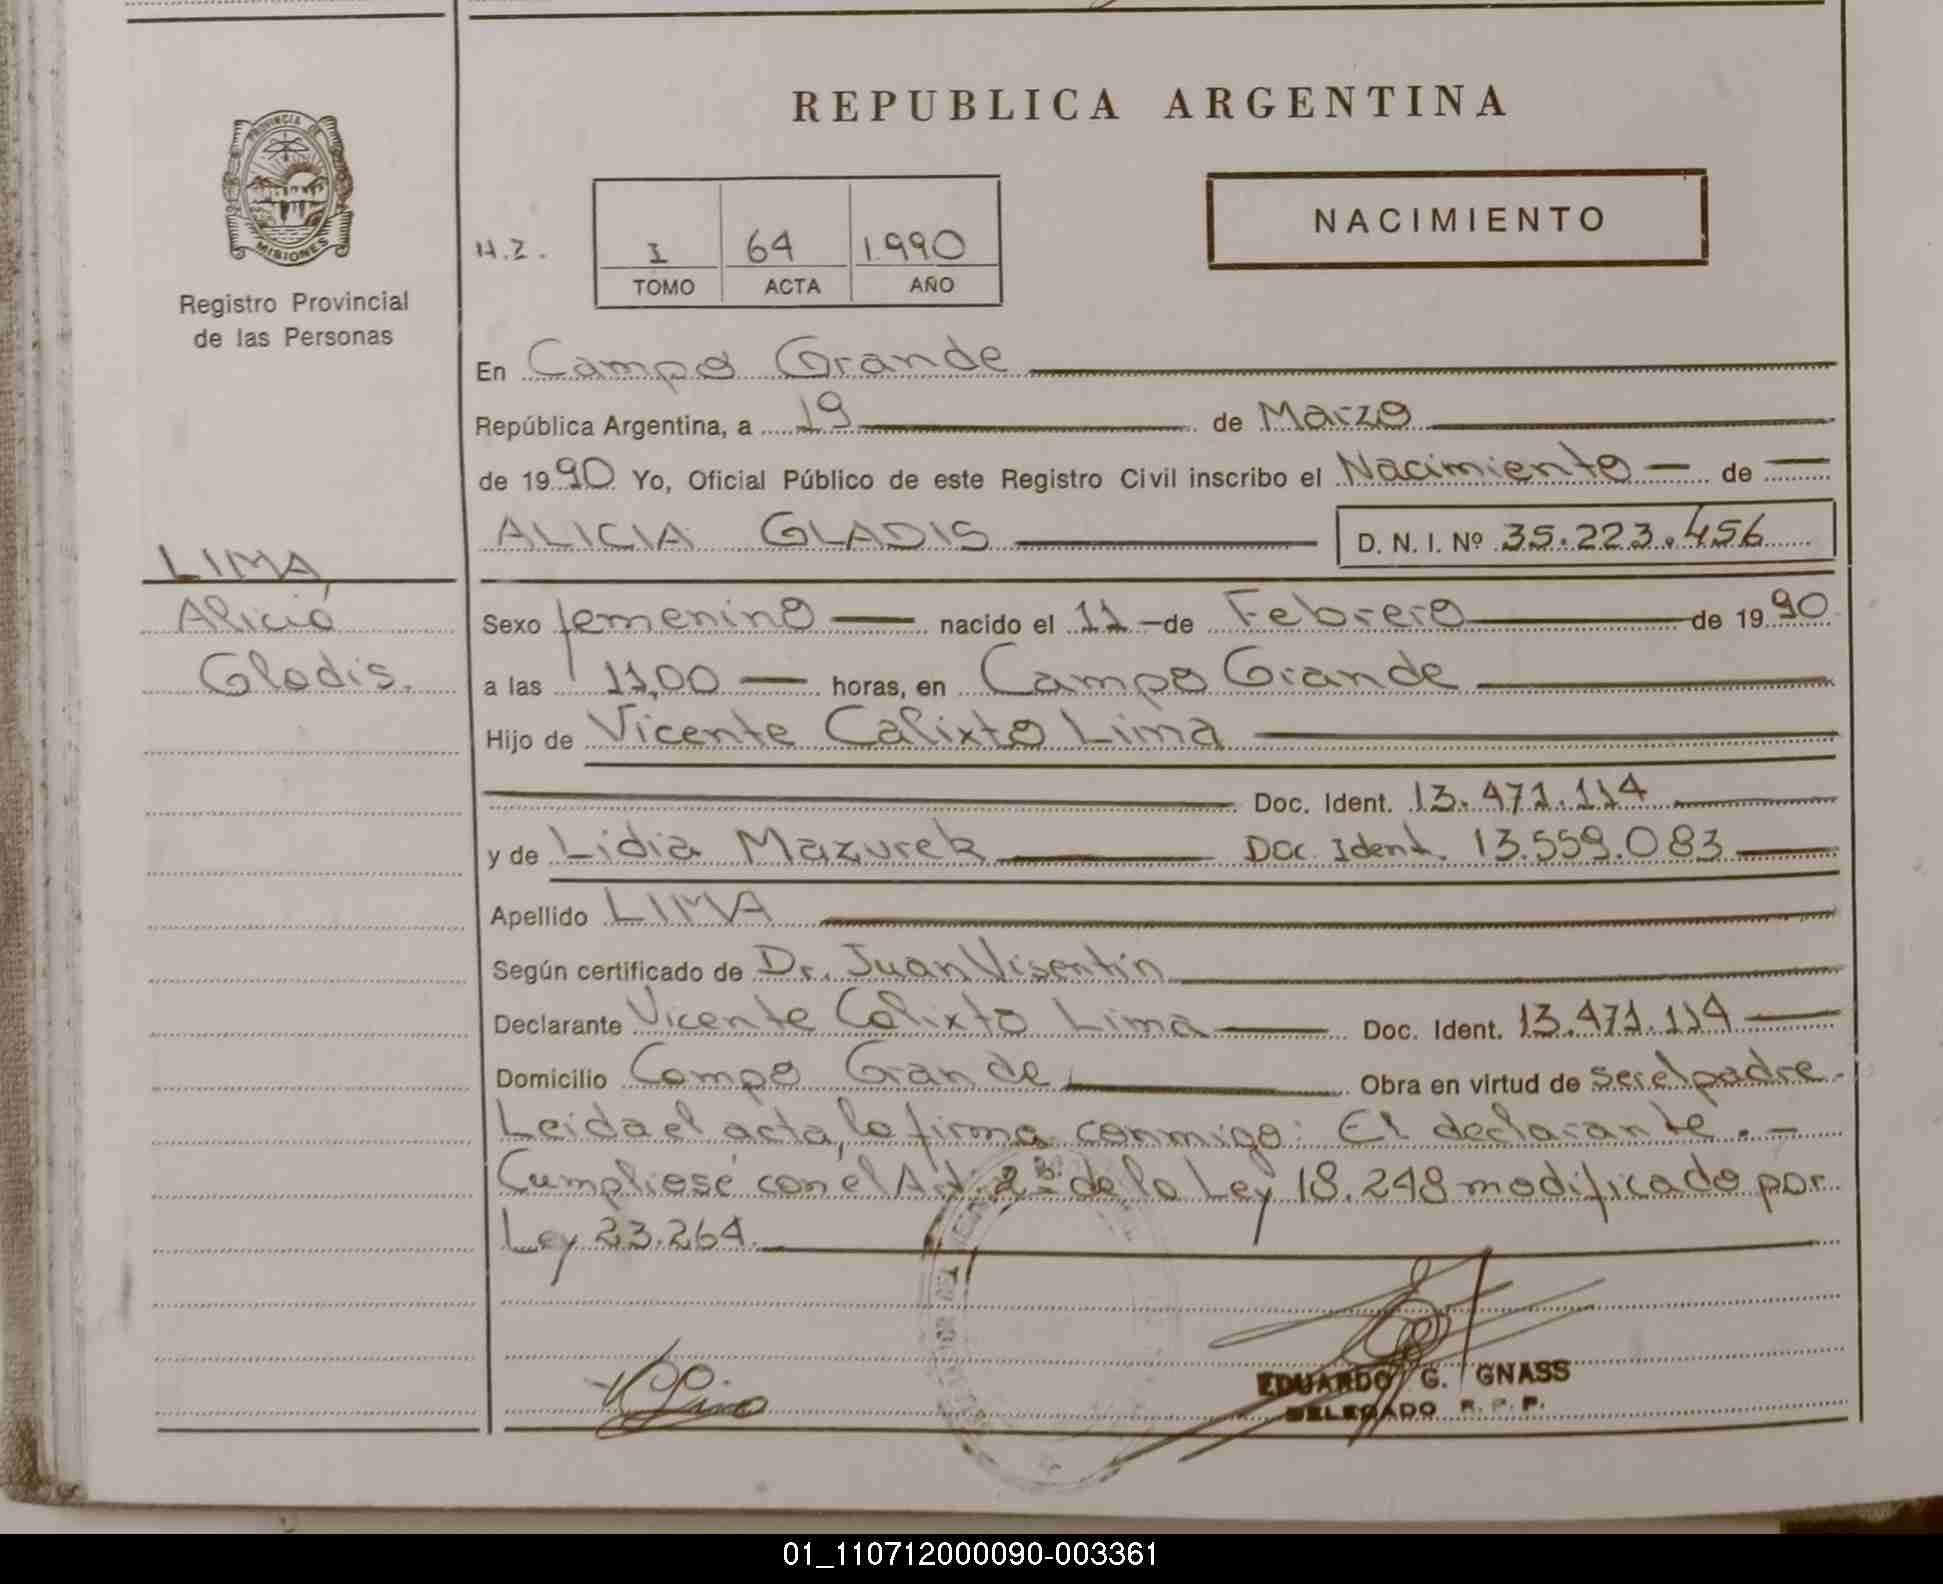 PROVINCIA DE
MISIONES
Registro Provincial
de las Personas
LIMA,
Alicia
Gladis.
REPUBLICA ARGENTINA
NACIMIENTO
H.Z.
I 64 1.990
TOMO ACTA AÑO
En Campo Grande
República Argentina, a 19 de Marzo
de 1990 Yo, Oficial Público de este Registro Civil inscribo el Nacimiento de
ALICIA GLADIS D. N. I. Nº 35.223.456
Sexo femenino nacido el 11 de Febrero de 1990
a las 11,00 horas, en Campo Grande
Hijo de Vicente Calixto Lima
Doc. Ident. 13.471.114
y de Lidia Mazurek Doc. Ident. 13.559.083
Apellido LIMA
Según certificado de Dr. Juan Visentin
Declarante Vicente Calixto Lima Doc. Ident. 13.471.114
Domicilio Campo Grande Obra en virtud de ser el padre.
Leida el acta, la firma conmigo: El declarante. -
Cumpliose con el Art. 2º de la Ley 18.248 modificado por
Ley 23.264.
V Lima
EDUARDO G. GNASS
DELEGADO R. P. P.
01_110712000090-003361